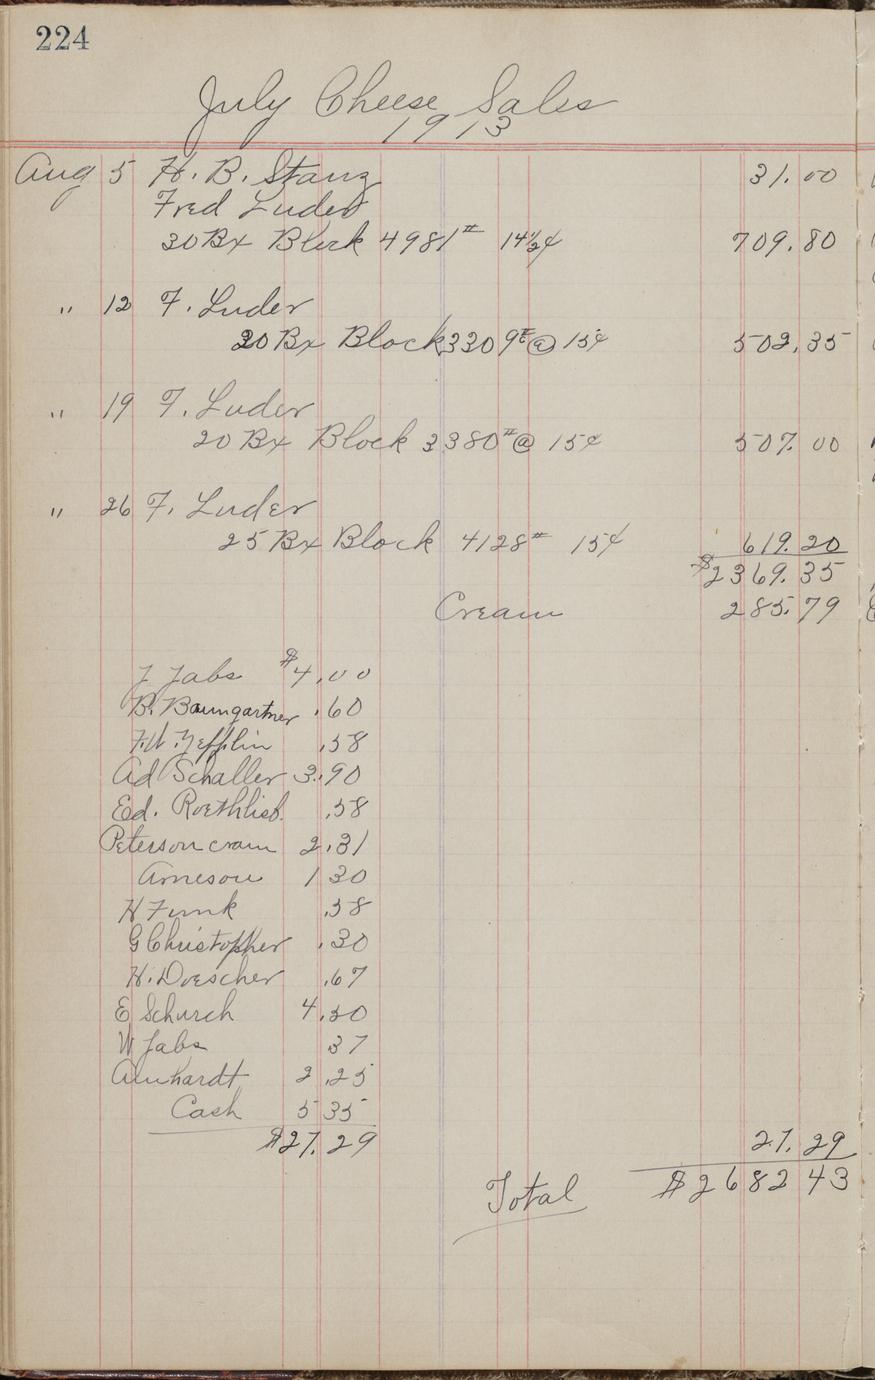 224
July Cheese Sales
1913
Aug 5 H. B. Stanz 31.00
Fred Luder
30 Bx Block 4981# 14 1/4¢ 709.80
" 12 F. Luder
20 Bx Block 3309# @ 15¢ 502.35
" 19 F. Luder
20 Bx Block 3380# @ 15¢ 507.00
" 26 F. Luder
25 Bx Block 4128# 15¢ 619.20
$2369.35
Cream 285.79
J Jabs $4.00
B. Baumgartner .60
F.W. Zefflin .58
Ad Schaller 3.90
Ed. Roethlisb. .58
Peterson cram 2.31
Arneson 1 30
H Funk .58
G Christopher .30
H. Doescher .67
E Schurch 4.50
W Jabs 37
Amhardt 2.25
Cash 5 35
$27.29 27.29
Total $2682 43